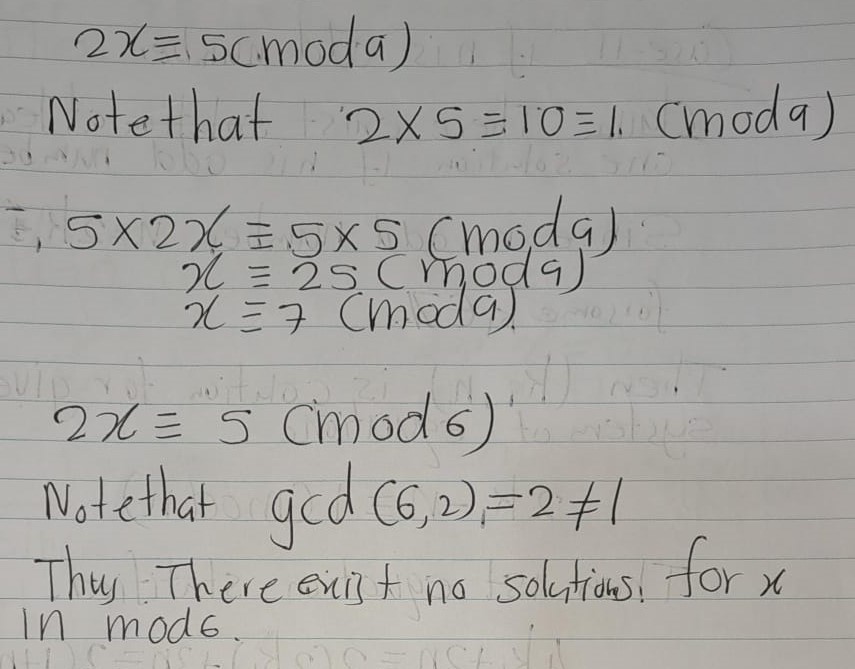 2x ≡ 5 (mod 9)
Note that 2 × 5 ≡ 10 ≡ 1. (mod 9)
5 × 2x ≡ 5 × 5 (mod 9)
x ≡ 25 (mod 9)
x ≡ 7 (mod 9)
2x ≡ 5 (mod 6)
Note that gcd (6,2) = 2 ≠ 1
Thus There exist no solutions. for x
in mod 6.